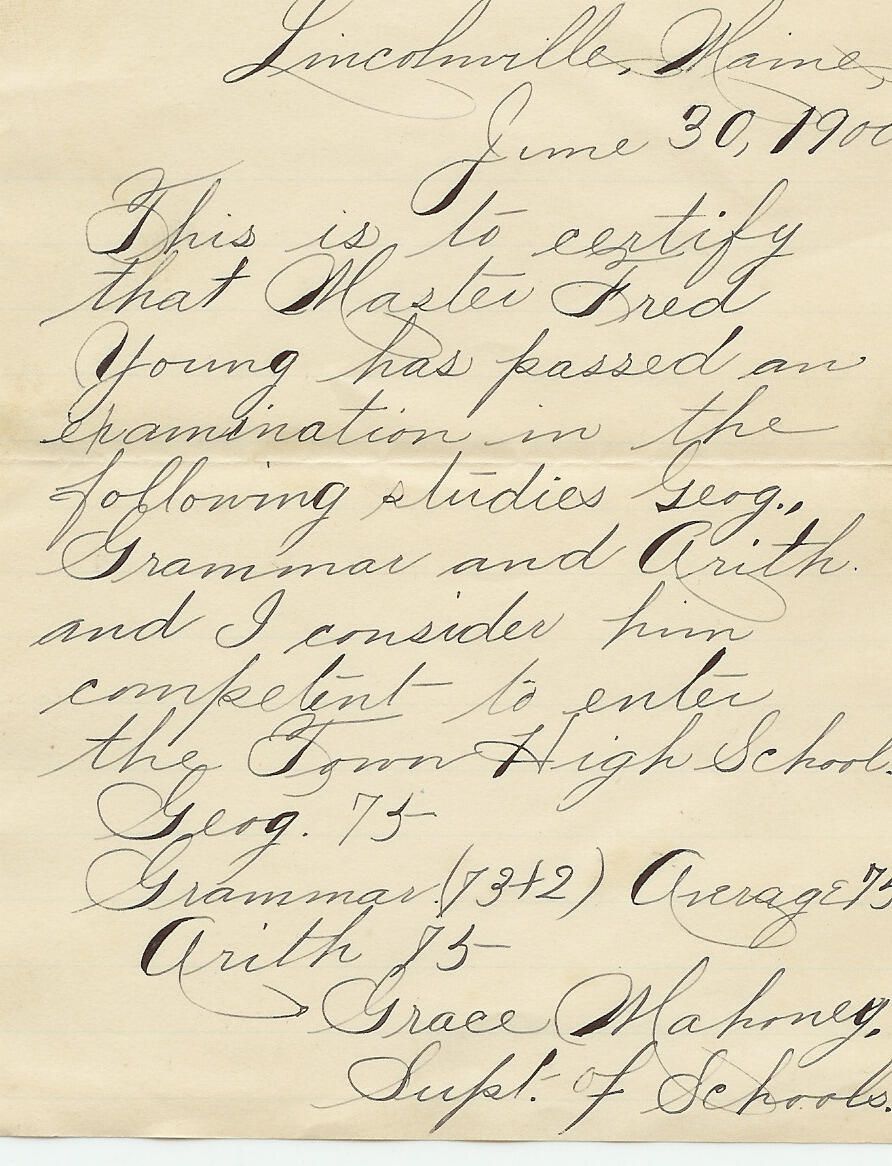 Lincolnville, Maine,
June 30, 1900
This is to certify
that Master Fred
Young has passed an
examination in the
following studies Geog.,
Grammar and Arith.
and I consider him
competent to enter
the Town High School.
Geog. 75
Grammar (73+2) Average 75
Arith 75
Grace Mahoney,
Supt. of Schools.